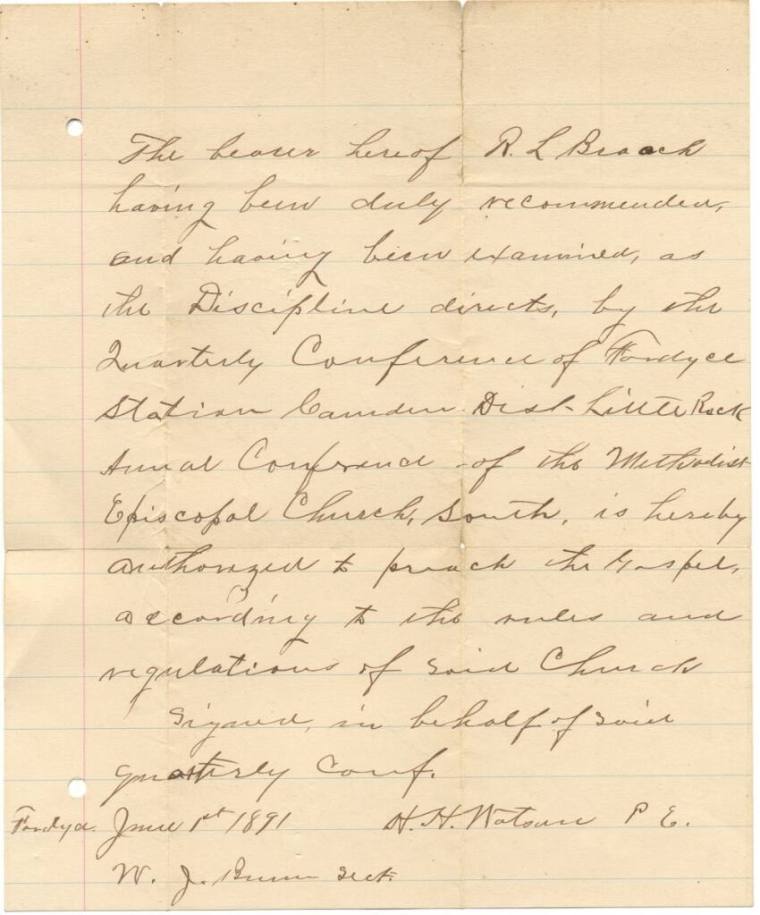 The bearer hereof R. L Broach
having been duly recommended,
and having been examined, as
the Discipline directs, by the
Quarterly Conference of Fordyce
Station Camden Dist- Little Rock
Annual Conference of the Methodist
Episcopal Church, South, is hereby
authorized to preach the Gospel,
according to the rules and
regulations of said Church
Signed, in behalf of said
quarterly Conf.
Fordyce. June 1st 1891 H. H. Watson P E.
W. J. Sect.